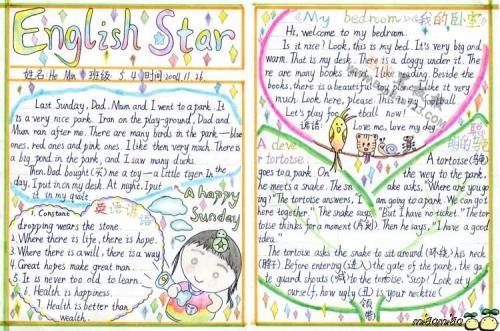 English Star
姓名 He Min 班级 5.4 时间 2004.11.26
Last Sunday, Dad, Mum and I went to a park. It
is a very nice park. I ran on the playground, Dad and
Mum ran after me. There are many birds in the park—blue
ones, red ones and pink ones. I like then very much. There is
a big pond in the park, and I saw many ducks.
Then Dad bought (买) me a toy—a little tiger. In the
day, I put in on my desk. At night, I put
it in my
A happy
Sunday
英语谚语
1. Constant
dropping wears the stone.
2. Where there is life, there is hope.
3. Where there is a will, there is a way
4. Great hopes make great man.
5. It is never too old to learn.
6. Health is happiness.
7. Health is better than
wealth.
《My bedroom》我的卧室
Hi, welcome to my bedroom.
Is it nice? Look, this is my bed. It's very big and
warm. That is my desk. There is a doggy under it. The
re are many books on it. I like reading. Beside the
books, there is a beautiful toy plane. I like it very
much. Look here, please. This is my football.
Let's play football now!
谚语: Love me, love my dog
A clever
tortoise
聪明的龟
A tortoise (龟)
goes to a park. On the way to the park,
he meets a snake. The snake asks, "Where are you go
ing?" The tortoise answers, "I am going to a park. We can got
here together." The snake says, "But I have no ticket." The tor
toise thinks for a moment (片刻). Then he says, "I have a good
idea."
The tortoise asks the snake to sit around (环绕) his nec
k (脖子). Before entering (进入) the gate of the park, the ga
te guard shouts to the tortoise. "Stop! Look at y
ourself, how ugly (丑) is your necktie (领带)
miaomiao